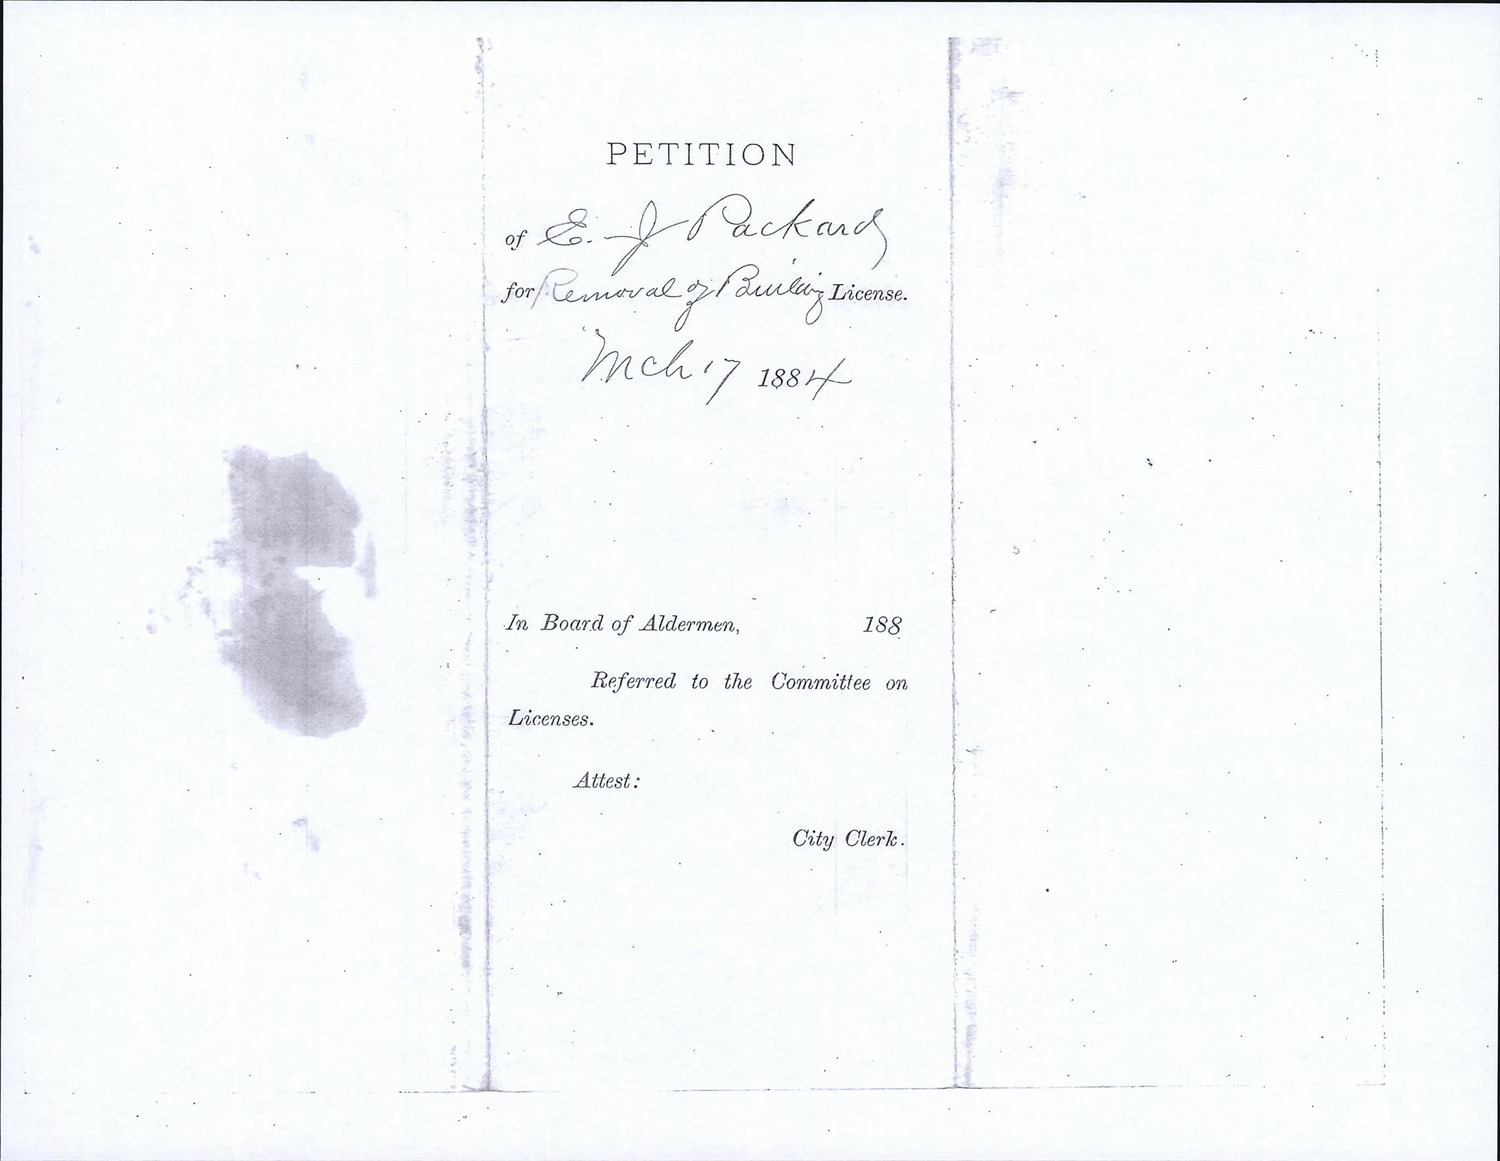 PETITION
of E. J Packard
for Removal of Building License.
Mch 17 1884
In Board of Aldermen, 188
Referred to the Committee on
Licenses.
Attest:
City Clerk.